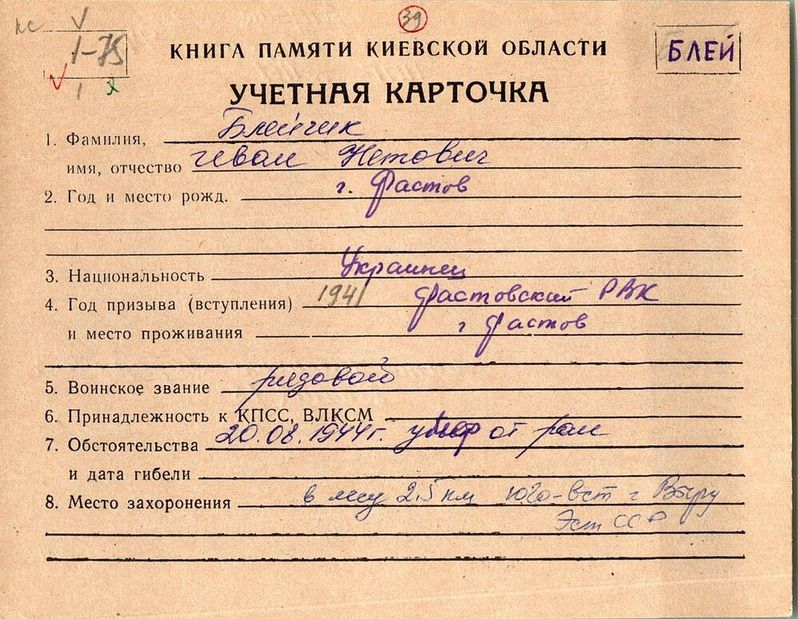 кс
1-75
39
КНИГА ПАМЯТИ КИЕВСКОЙ ОБЛАСТИ
БЛЕЙ
УЧЕТНАЯ КАРТОЧКА
1. Фамилия, Блейчик
имя, отчество Иван Нетович
2. Год и место рожд. г. Фастов
3. Национальность Украинец
4. Год призыва (вступления) 1941 Фастовский РВК
и место проживания г Фастов
5. Воинское звание рядовой
6. Принадлежность к КПСС, ВЛКСМ
7. Обстоятельства 20.08.1944г. умер от ран
и дата гибели
8. Место захоронения в лесу 2,5 км юго-вст г Выру
Эст ССР